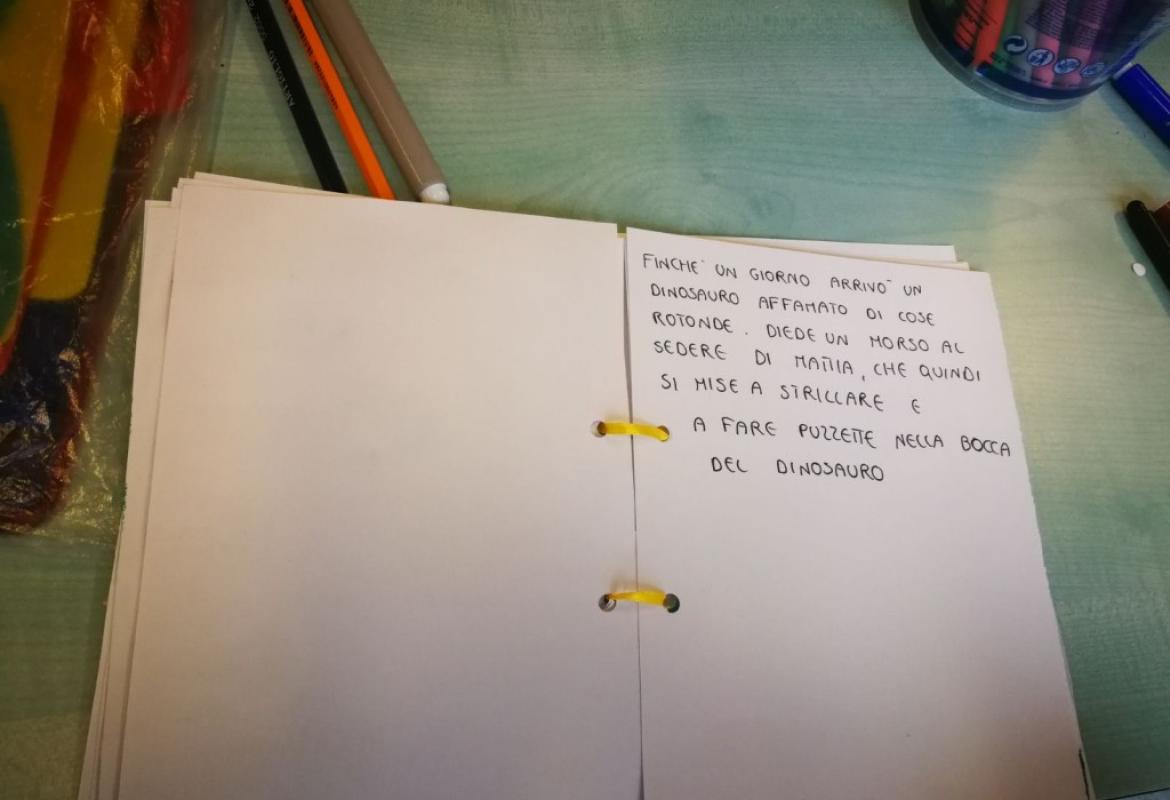 FINCHE' UN GIORNO ARRIVO' UN
DINOSAURO AFFAMATO DI COSE
ROTONDE. DIEDE UN MORSO AL
SEDERE DI MATTIA, CHE QUINDI
SI MISE A STRILLARE E
A FARE PUZZETTE NELLA BOCCA
DEL DINOSAURO